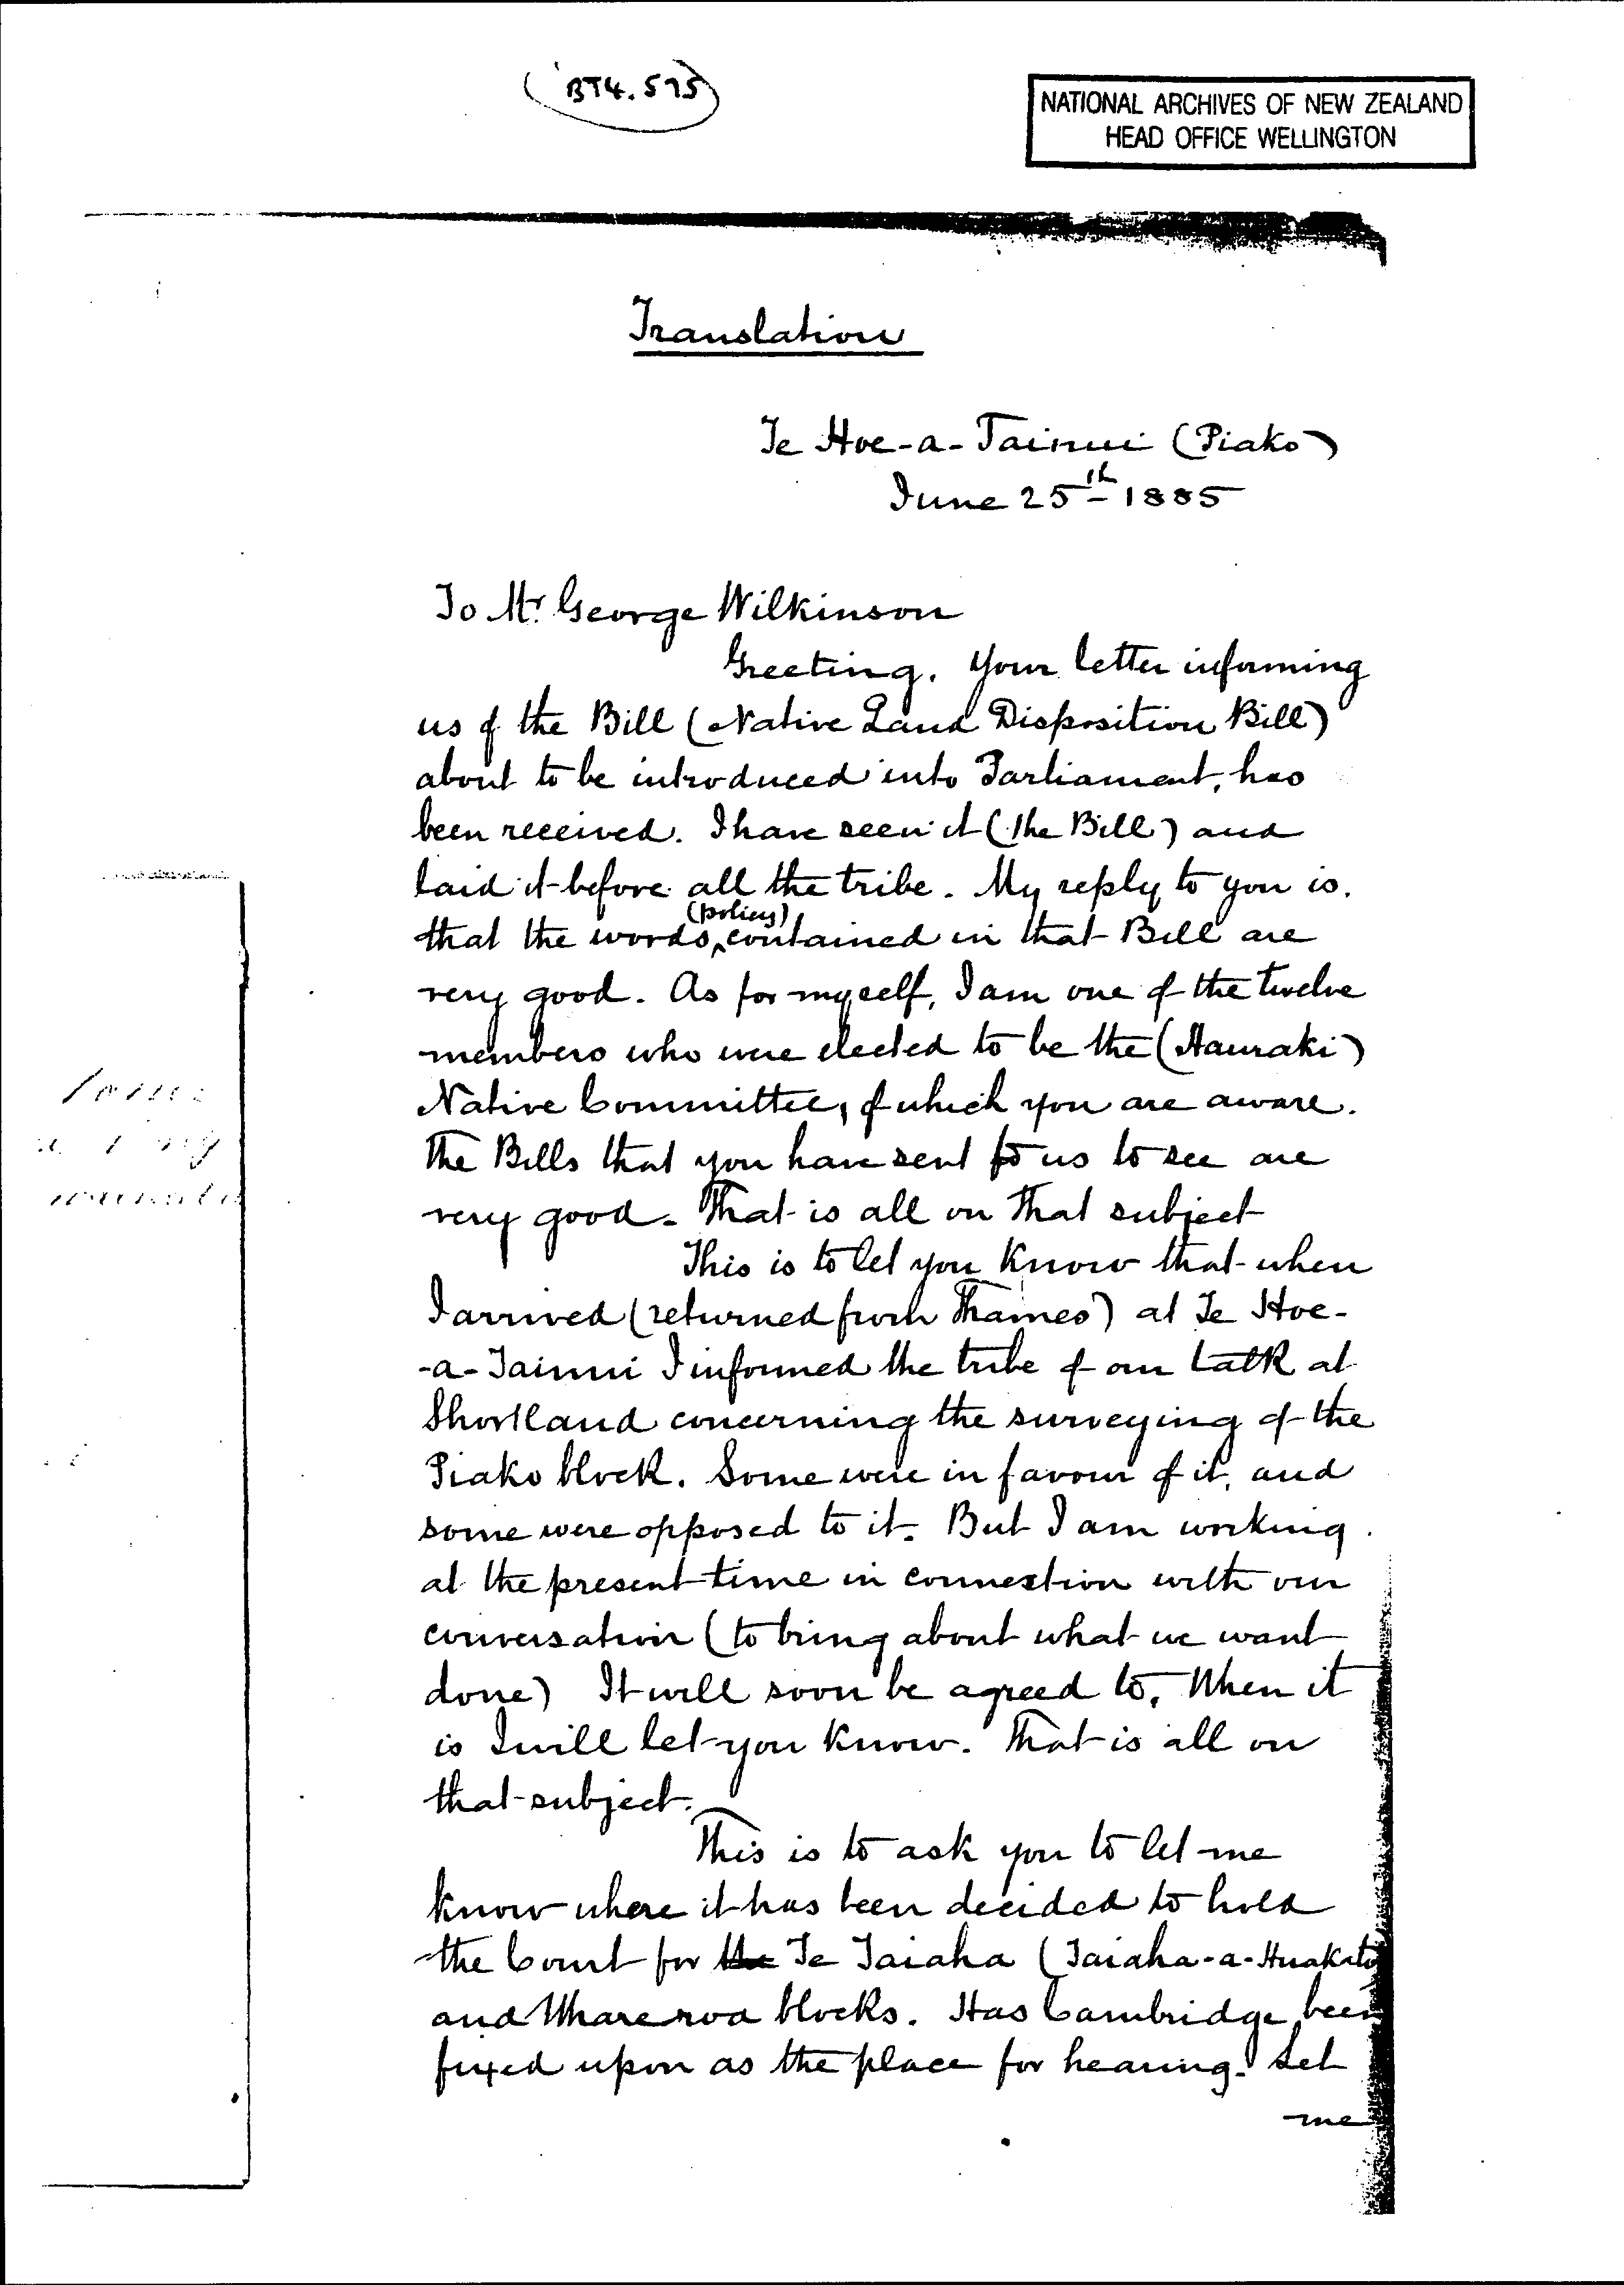 (BT4. 575)
NATIONAL ARCHIVES OF NEW ZEALAND
HEAD OFFICE WELLINGTON
Translation
Te Hoe-a-Tainui (Piako)
June 25th 1885
To Mr. George Wilkinson
Greeting. Your letter informing
us of the Bill (Native Land Disposition Bill)
about to be introduced into Parliament, has
been received. I have seen it (the Bill) and
laid it before all the tribe. My reply to you is.
that the words (policy) contained in that Bill are
very good. As for myself, I am one of the twelve
members who were elected to be the (Hauraki)
Native Committee, of which you are aware.
The Bills that you have sent to us to see are
very good. That is all on that subject
This is to let you know that when
I arrived (returned from Thames) at Te Hoe-
-a-Tainui I informed the tribe of our talk at
Shortland concerning the surveying of the
Piako block. Some were in favour of it, and
some were opposed to it. But I am working
at the present time in connection with our
conversation (to bring about what we want
done) It will soon be agreed to. When it
is I will let you know. That is all on
that subject.
This is to ask you to let me
know where it has been decided to hold
the Court for the Te Taiaha (Taiaha-a-Huakato
and Whareroa blocks. Has Cambridge been
fixed upon as the place for hearing. Let
me